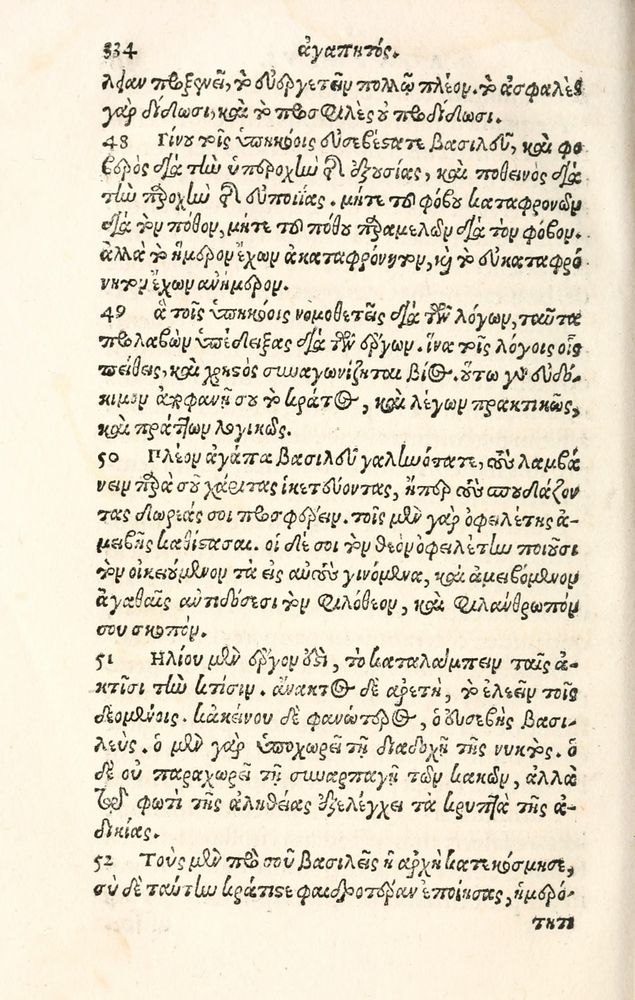 334 ἀγαπητός.
λίαν προξενεῖ, τὸ εὐεργετεῖν πολλῷ πλέον. τὸ ἀσφαλὲς
γὰρ δίδωσι, καὶ τὸ προσφιλὲς οὐ προδίδωσι.
48 Γίνου τοῖς ὑπηκόοις εὐσεβέστατε βασιλεῦ, καὶ φο-
βερὸς διὰ τὴν ὑπεροχὴν τῆς ἐξουσίας, καὶ ποθεινὸς διὰ
τὴν παροχὴν τῆς εὐποιίας. μήτε τοῦ φόβου καταφρονῶν
διὰ τὸν πόθον, μήτε τοῦ πόθου παραμελῶν διὰ τὸν φόβον.
ἀλλὰ τὸ ἥμερον ἔχων ἀκαταφρόνητον, καὶ τὸ εὐκαταφρό
νητον ἔχων ἀνήμερον.
49 ἃ τοῖς ὑπηκόοις νομοθετεῖς διὰ τῶν λόγων, ταῦτα
προλαβὼν ὑπέδειξας διὰ τῶν ἔργων. ἵνα τοῖς λόγοις οἷς
πείθεις, καὶ χρηστὸς συναγωνίζηται βίος. οὕτω γὰρ εὐδό-
κιμον ἀποφανῇ σου τὸ κράτος, καὶ λέγων πρακτικῶς,
καὶ πράττων λογικῶς.
50 Πλέον ἀγάπα βασιλεῦ γαληνότατε, τοὺς λαμβά
νειν παρὰ σοῦ χάριτας ἱκετεύοντας, ἤπερ τοὺς σπουδάζον
τας δωρεάς σοι προσφέρειν. τοῖς μὲν γὰρ ὀφειλέτης ἀ-
μοιβῆς καθίστασαι. οἱ δέ σοι τὸν θεὸν ὀφειλέτην ποιοῦσι
τὸν οἰκειούμενον τὰ εἰς αὐτοὺς γινόμενα, καὶ ἀμειβόμενον
ἀγαθαῖς ἀντιδόσεσι τὸν φιλόθεον, καὶ φιλάνθρωπόν
σου σκοπόν.
51 Ηλίου μὲν ἔργον ἐστὶ, τὸ καταλάμπειν ταῖς ἀ-
κτῖσι τὴν κτίσιν. ἄνακτος δὲ ἀρετὴ, τὸ ἐλεεῖν τοὺς
δεομένους. κἀκείνου δὲ φανώτερος, ὁ εὐσεβὴς βασι-
λεύς. ὁ μὲν γὰρ ὑποχωρεῖ τῇ διαδοχῇ τῆς νυκτός. ὁ
δὲ οὐ παραχωρεῖ τῇ συναρπαγῇ τῶν κακῶν, ἀλλὰ
τῷ φωτὶ τῆς ἀληθείας ἐξελέγχει τὰ κρυπτὰ τῆς ἀ-
δικίας.
52 Τοὺς μὲν πρὸ σοῦ βασιλεῖς ἡ ἀρχὴ κατεκόσμησε,
σὺ δὲ ταύτην κράτιστε φαιδροτέραν ἐποίησας, ἡμερό-
τητι